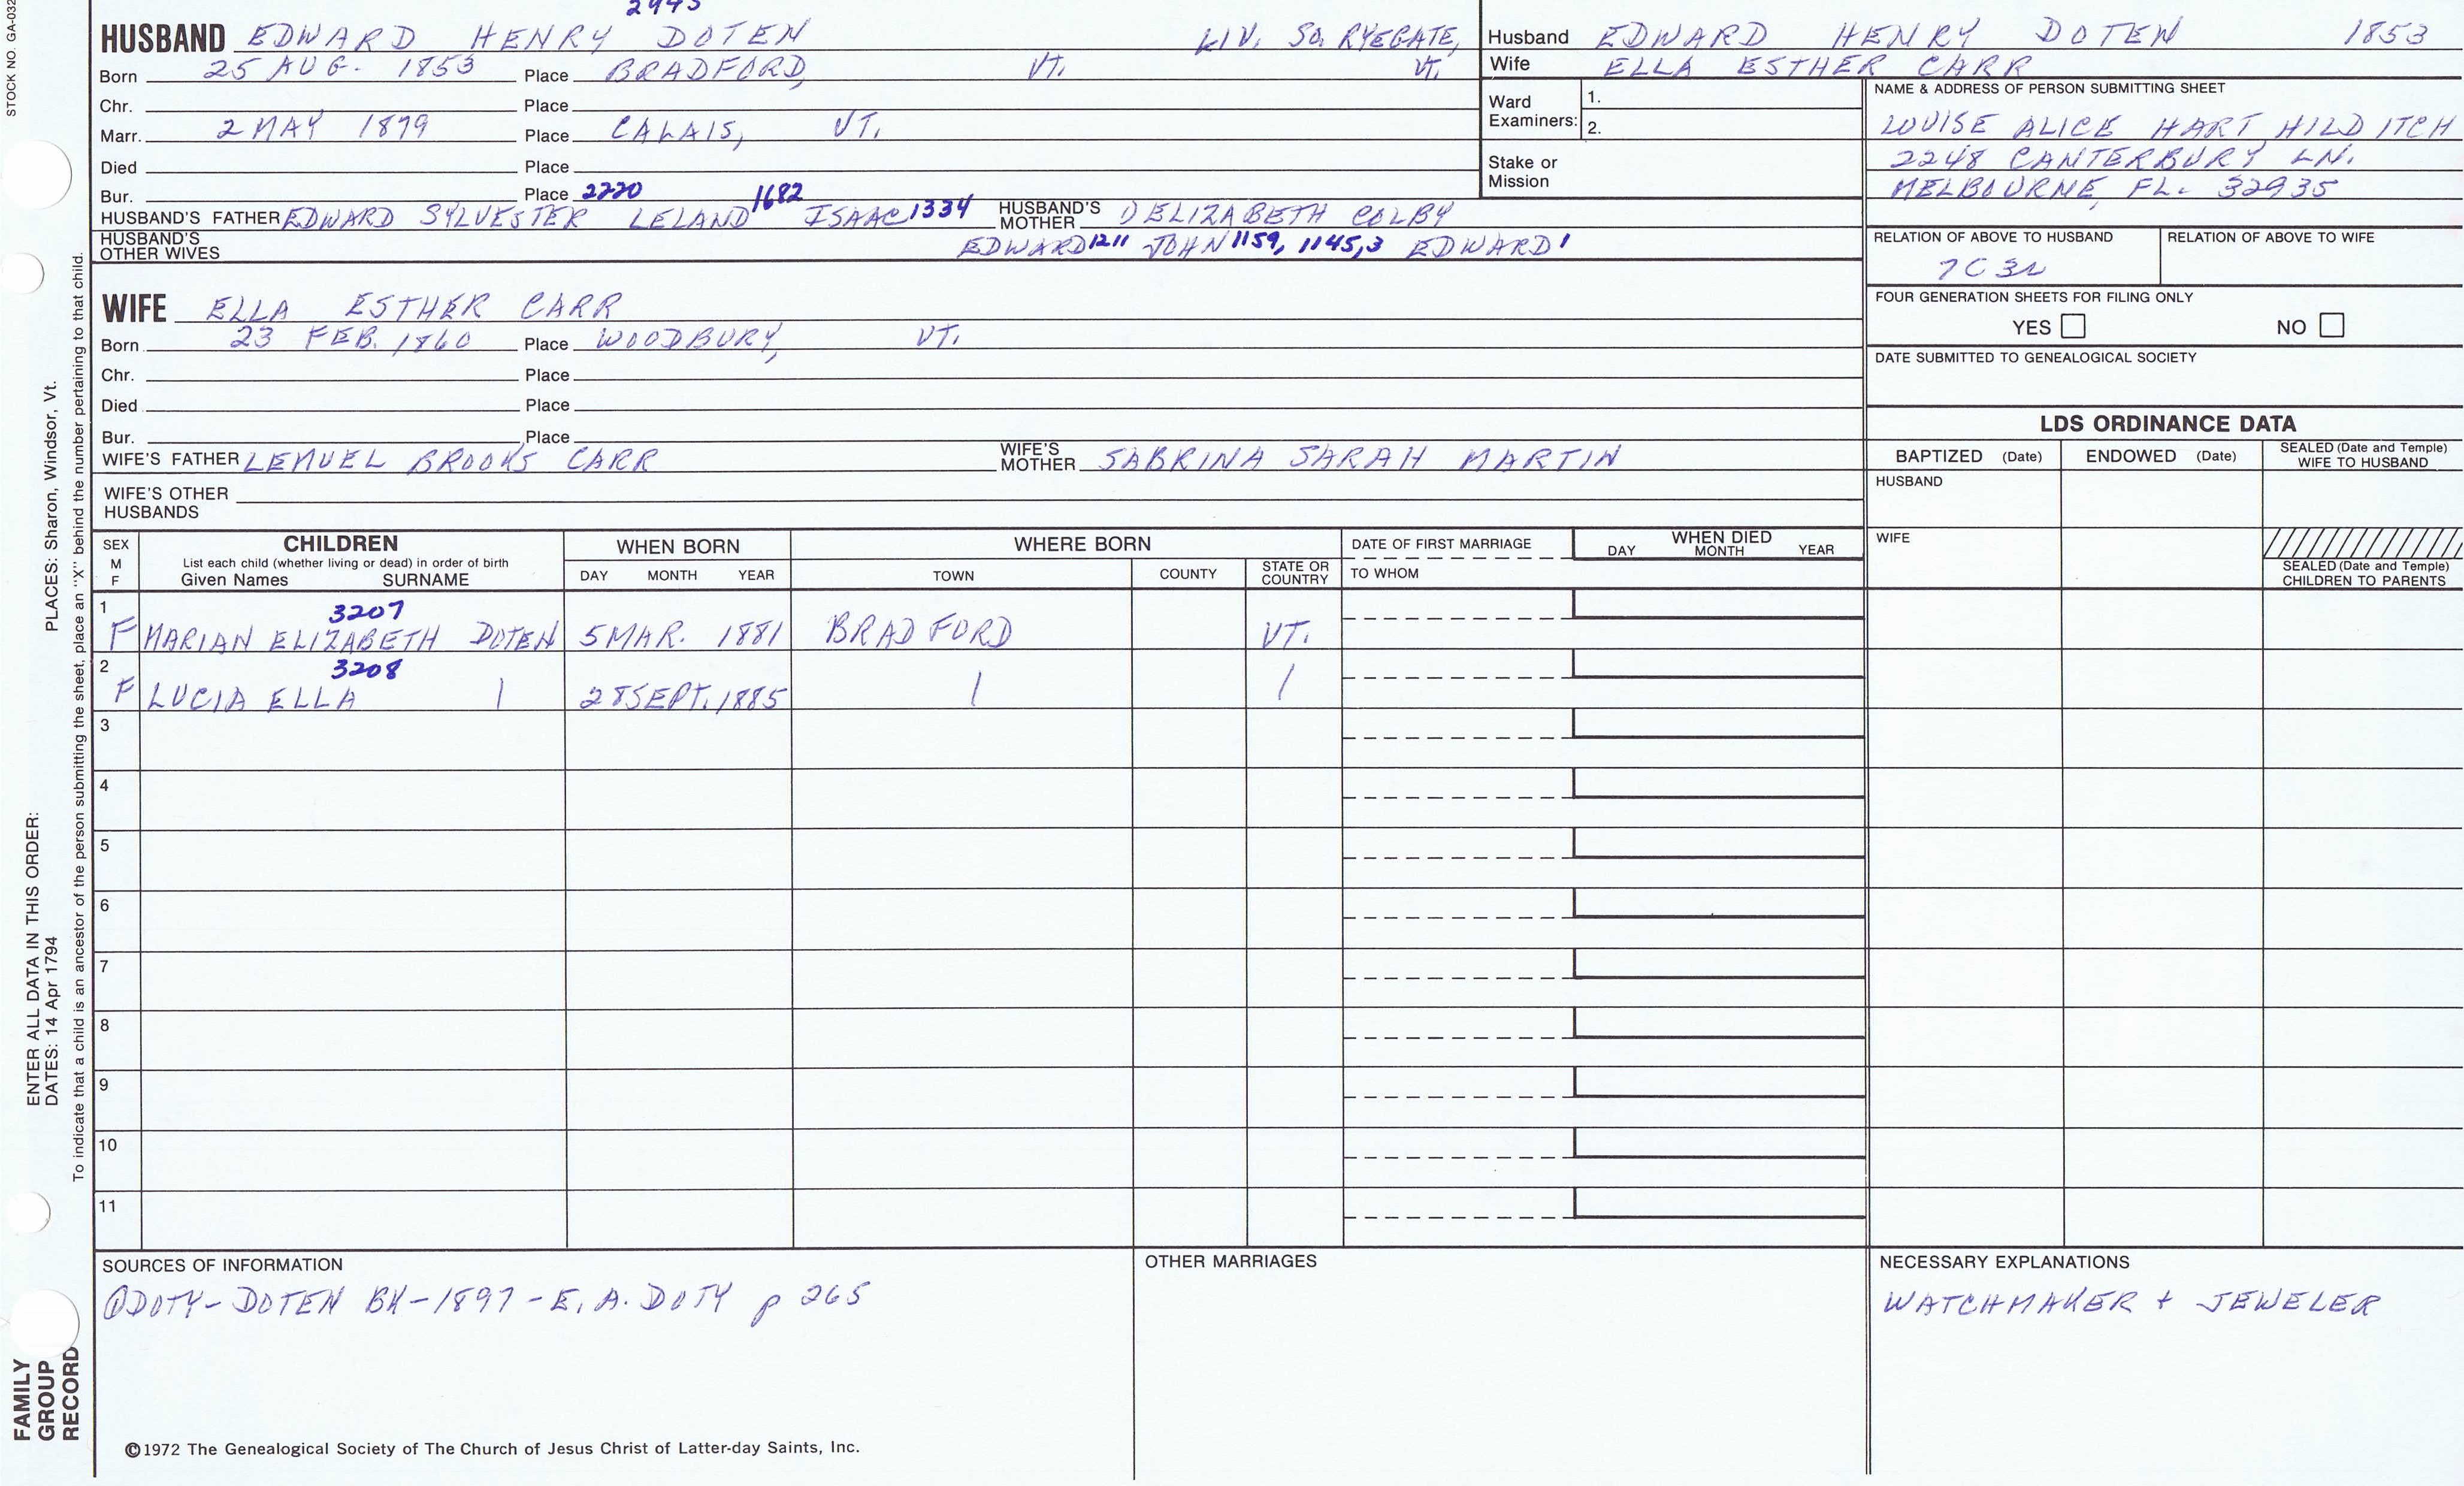 STOCK NO. GA-032
HUSBAND EDWARD HENRY DOTEN LIV. SO. RYEGATE,
Born 25 AUG. 1853 Place BRADFORD, VT. VT.
Chr. Place
Marr. 2 MAY 1879 Place CALAIS, VT.
Died Place
Bur. Place 2220 1682
HUSBAND'S FATHER EDWARD SYLVESTER LELAND ISAAC 1334 HUSBAND'S MOTHER ELIZABETH COLBY
HUSBAND'S OTHER WIVES EDWARD 1211 JOHN 1159, 1145, 3 EDWARD 1
WIFE ELLA ESTHER CARR
Born 23 FEB. 1860 Place WOODBURY, VT.
Chr. Place
Died Place
Bur. Place
WIFE'S FATHER LEMUEL BROOKS CARR WIFE'S MOTHER SABRINA SARAH MARTIN
WIFE'S OTHER HUSBANDS
Husband EDWARD HENRY DOTEN 1853
Wife ELLA ESTHER CARR
Ward Examiners: 1.
2.
Stake or Mission
NAME & ADDRESS OF PERSON SUBMITTING SHEET
LOUISE ALICE HART HILDITCH
2248 CANTERBURY LN.
MELBOURNE, FL. 32935
RELATION OF ABOVE TO HUSBAND RELATION OF ABOVE TO WIFE
7C 3R
FOUR GENERATION SHEETS FOR FILING ONLY
YES NO
DATE SUBMITTED TO GENEALOGICAL SOCIETY
LDS ORDINANCE DATA
BAPTIZED (Date) ENDOWED (Date) SEALED (Date and Temple) WIFE TO HUSBAND
HUSBAND
WIFE
SEALED (Date and Temple) CHILDREN TO PARENTS
SEX M F
CHILDREN
List each child (whether living or dead) in order of birth
Given Names SURNAME
WHEN BORN
DAY MONTH YEAR
WHERE BORN
TOWN COUNTY STATE OR COUNTRY
DATE OF FIRST MARRIAGE
TO WHOM
WHEN DIED
DAY MONTH YEAR
1 3207
F MARIAN ELIZABETH DOTEN 5 MAR. 1881 BRADFORD VT.
2 3208
F LUCIA ELLA | 28 SEPT. 1885 | |
3
4
5
6
7
8
9
10
11
SOURCES OF INFORMATION
① DOTY-DOTEN BK-1897-E. A. DOTY p 265
OTHER MARRIAGES
NECESSARY EXPLANATIONS
WATCHMAKER + JEWELER
©1972 The Genealogical Society of The Church of Jesus Christ of Latter-day Saints, Inc.
ENTER ALL DATA IN THIS ORDER:
DATES: 14 Apr 1794 PLACES: Sharon, Windsor, Vt.
To indicate that a child is an ancestor of the person submitting the sheet, place an "X" behind the number pertaining to that child.
FAMILY
GROUP
RECORD